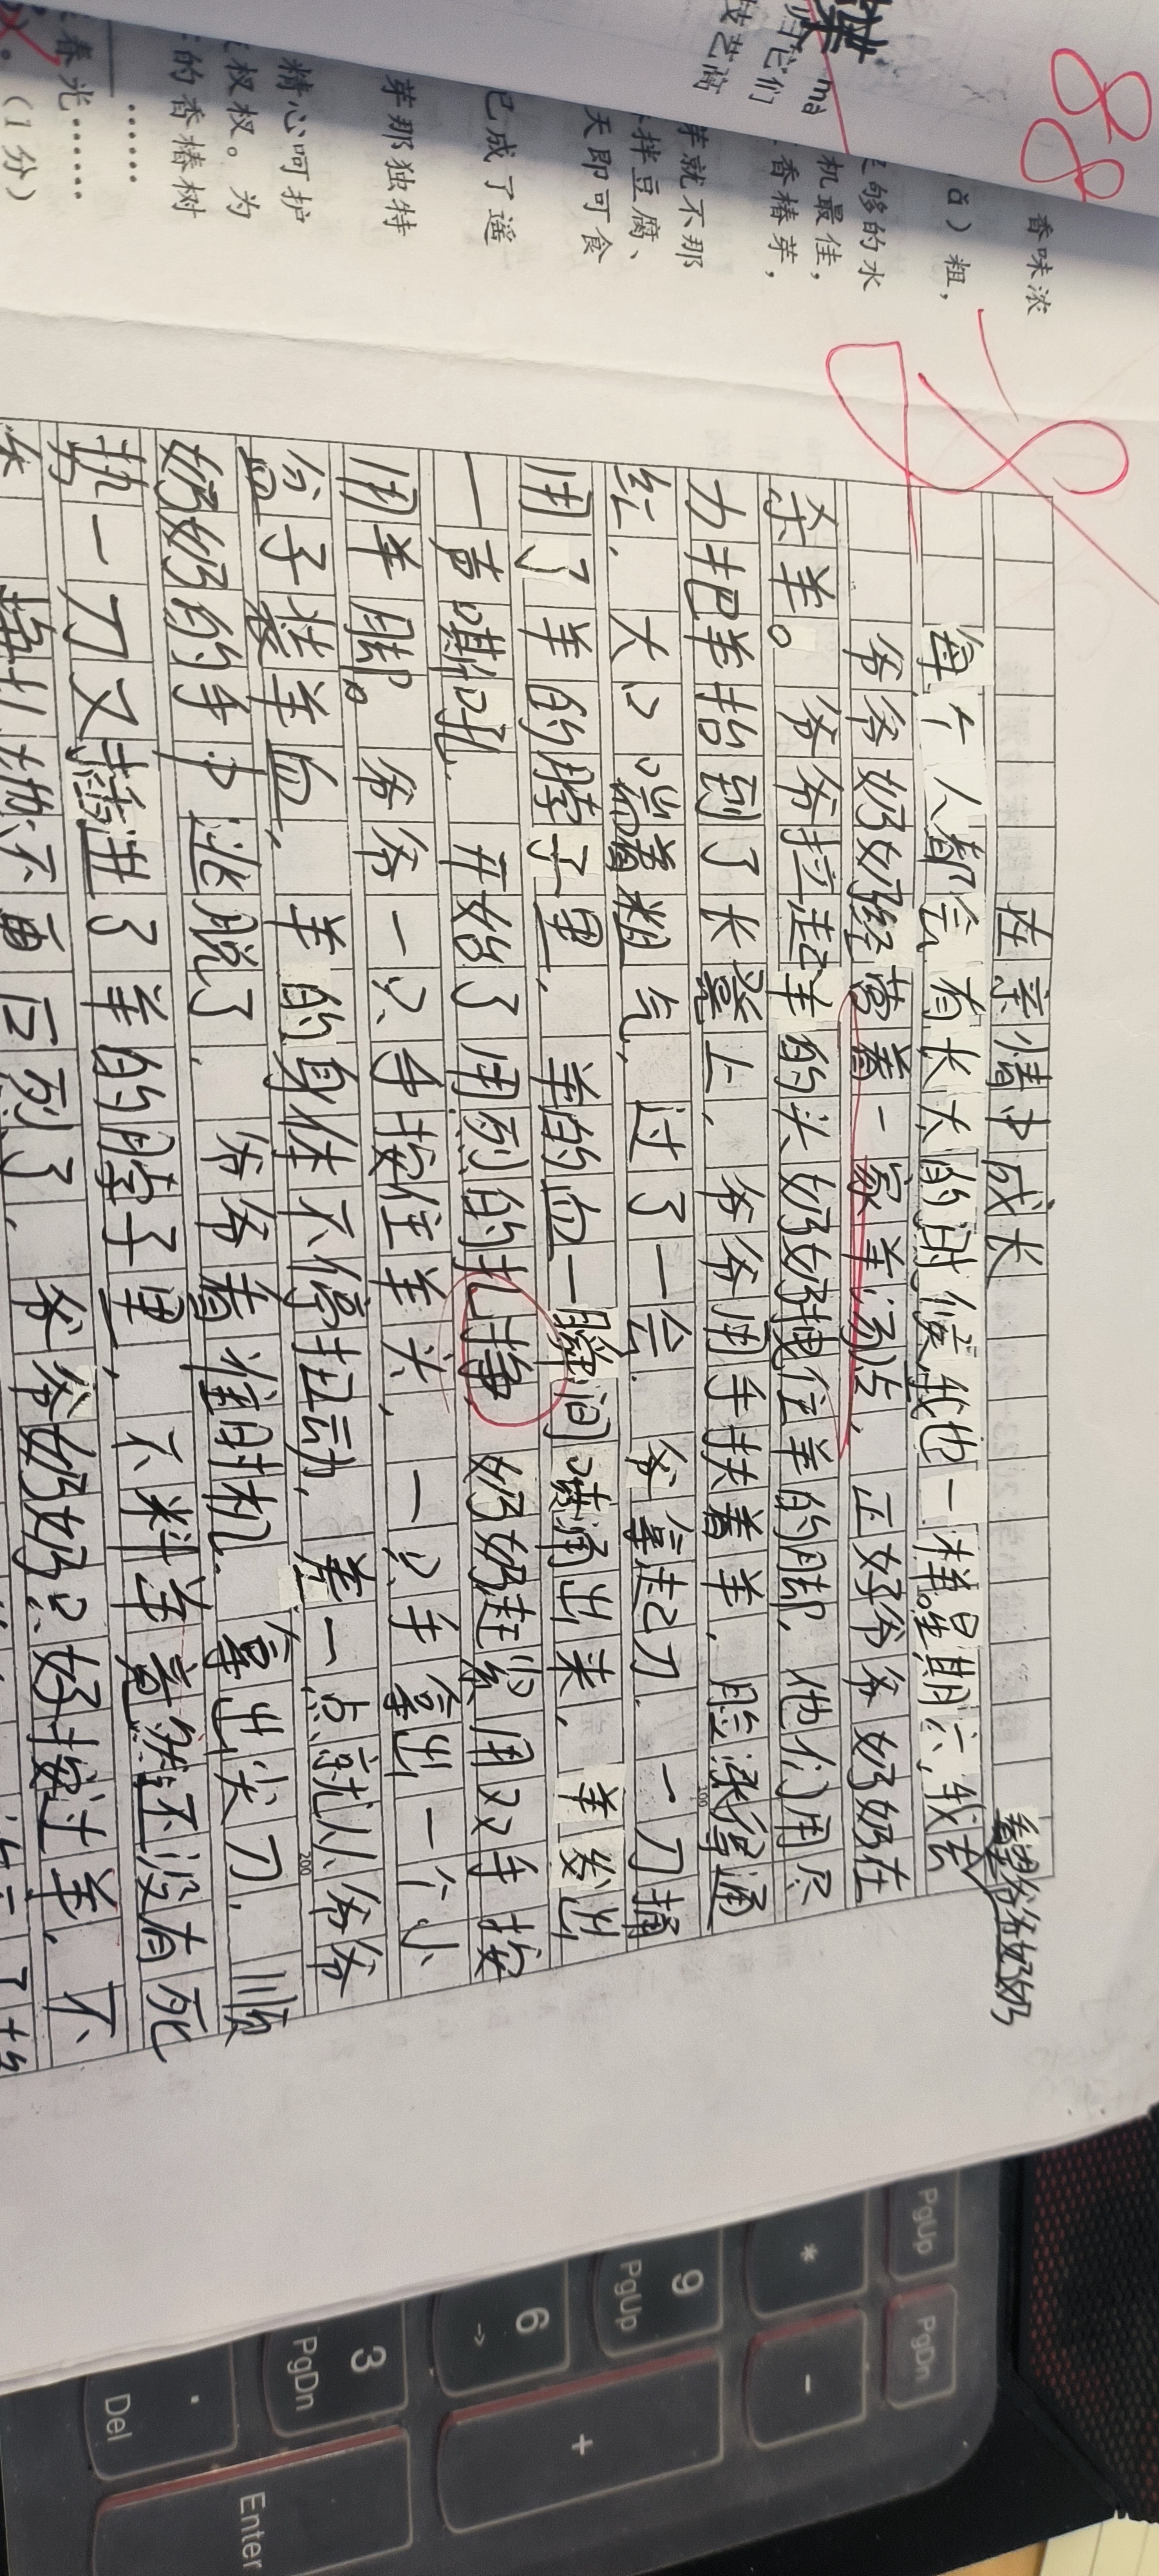 88
香味浓
ǎ）粗，
够的水
机最佳，
香椿芽，
它们
技艺高
mà
芽就不那
拌豆腐、
天即可食
已成了遥
芽那独特
精心呵护
杈杈。为
的香椿树
……
春光……
（1分）
-8
在亲情中成长
看望爷爷奶奶
每个人都会有长大的时候，我也一样。星期六，我去
爷爷奶奶经营着一家羊汤店，正好爷爷奶奶在
杀羊。爷爷拉起羊的头奶奶拽住羊的脚，他们用尽
力把羊抬到了长凳上，爷爷用手扶着羊，脸涨得通
红，大口喘着粗气，过了一会，爷爷拿起刀，一刀捅
用了羊的脖子里，羊的血一瞬间喷涌出来，羊发出
一声嘶吼，开始了剧烈的扎挣，奶奶赶紧用双手按
用羊脚。爷爷一只手按住羊头，一只手拿出一个小
盆子装羊血，羊的身体不停扭动，差一点就从爷爷
奶奶的手中逃脱了，爷爷看准时机，拿出尖刀，顺
势一刀又捅进了羊的脖子里，不料羊竟然还没有死
爷爷奶奶只好按过羊，不
100
200
PgUp
PgDn
*
-
9
PgUp
6
→
+
3
PgDn
.
Del
Enter